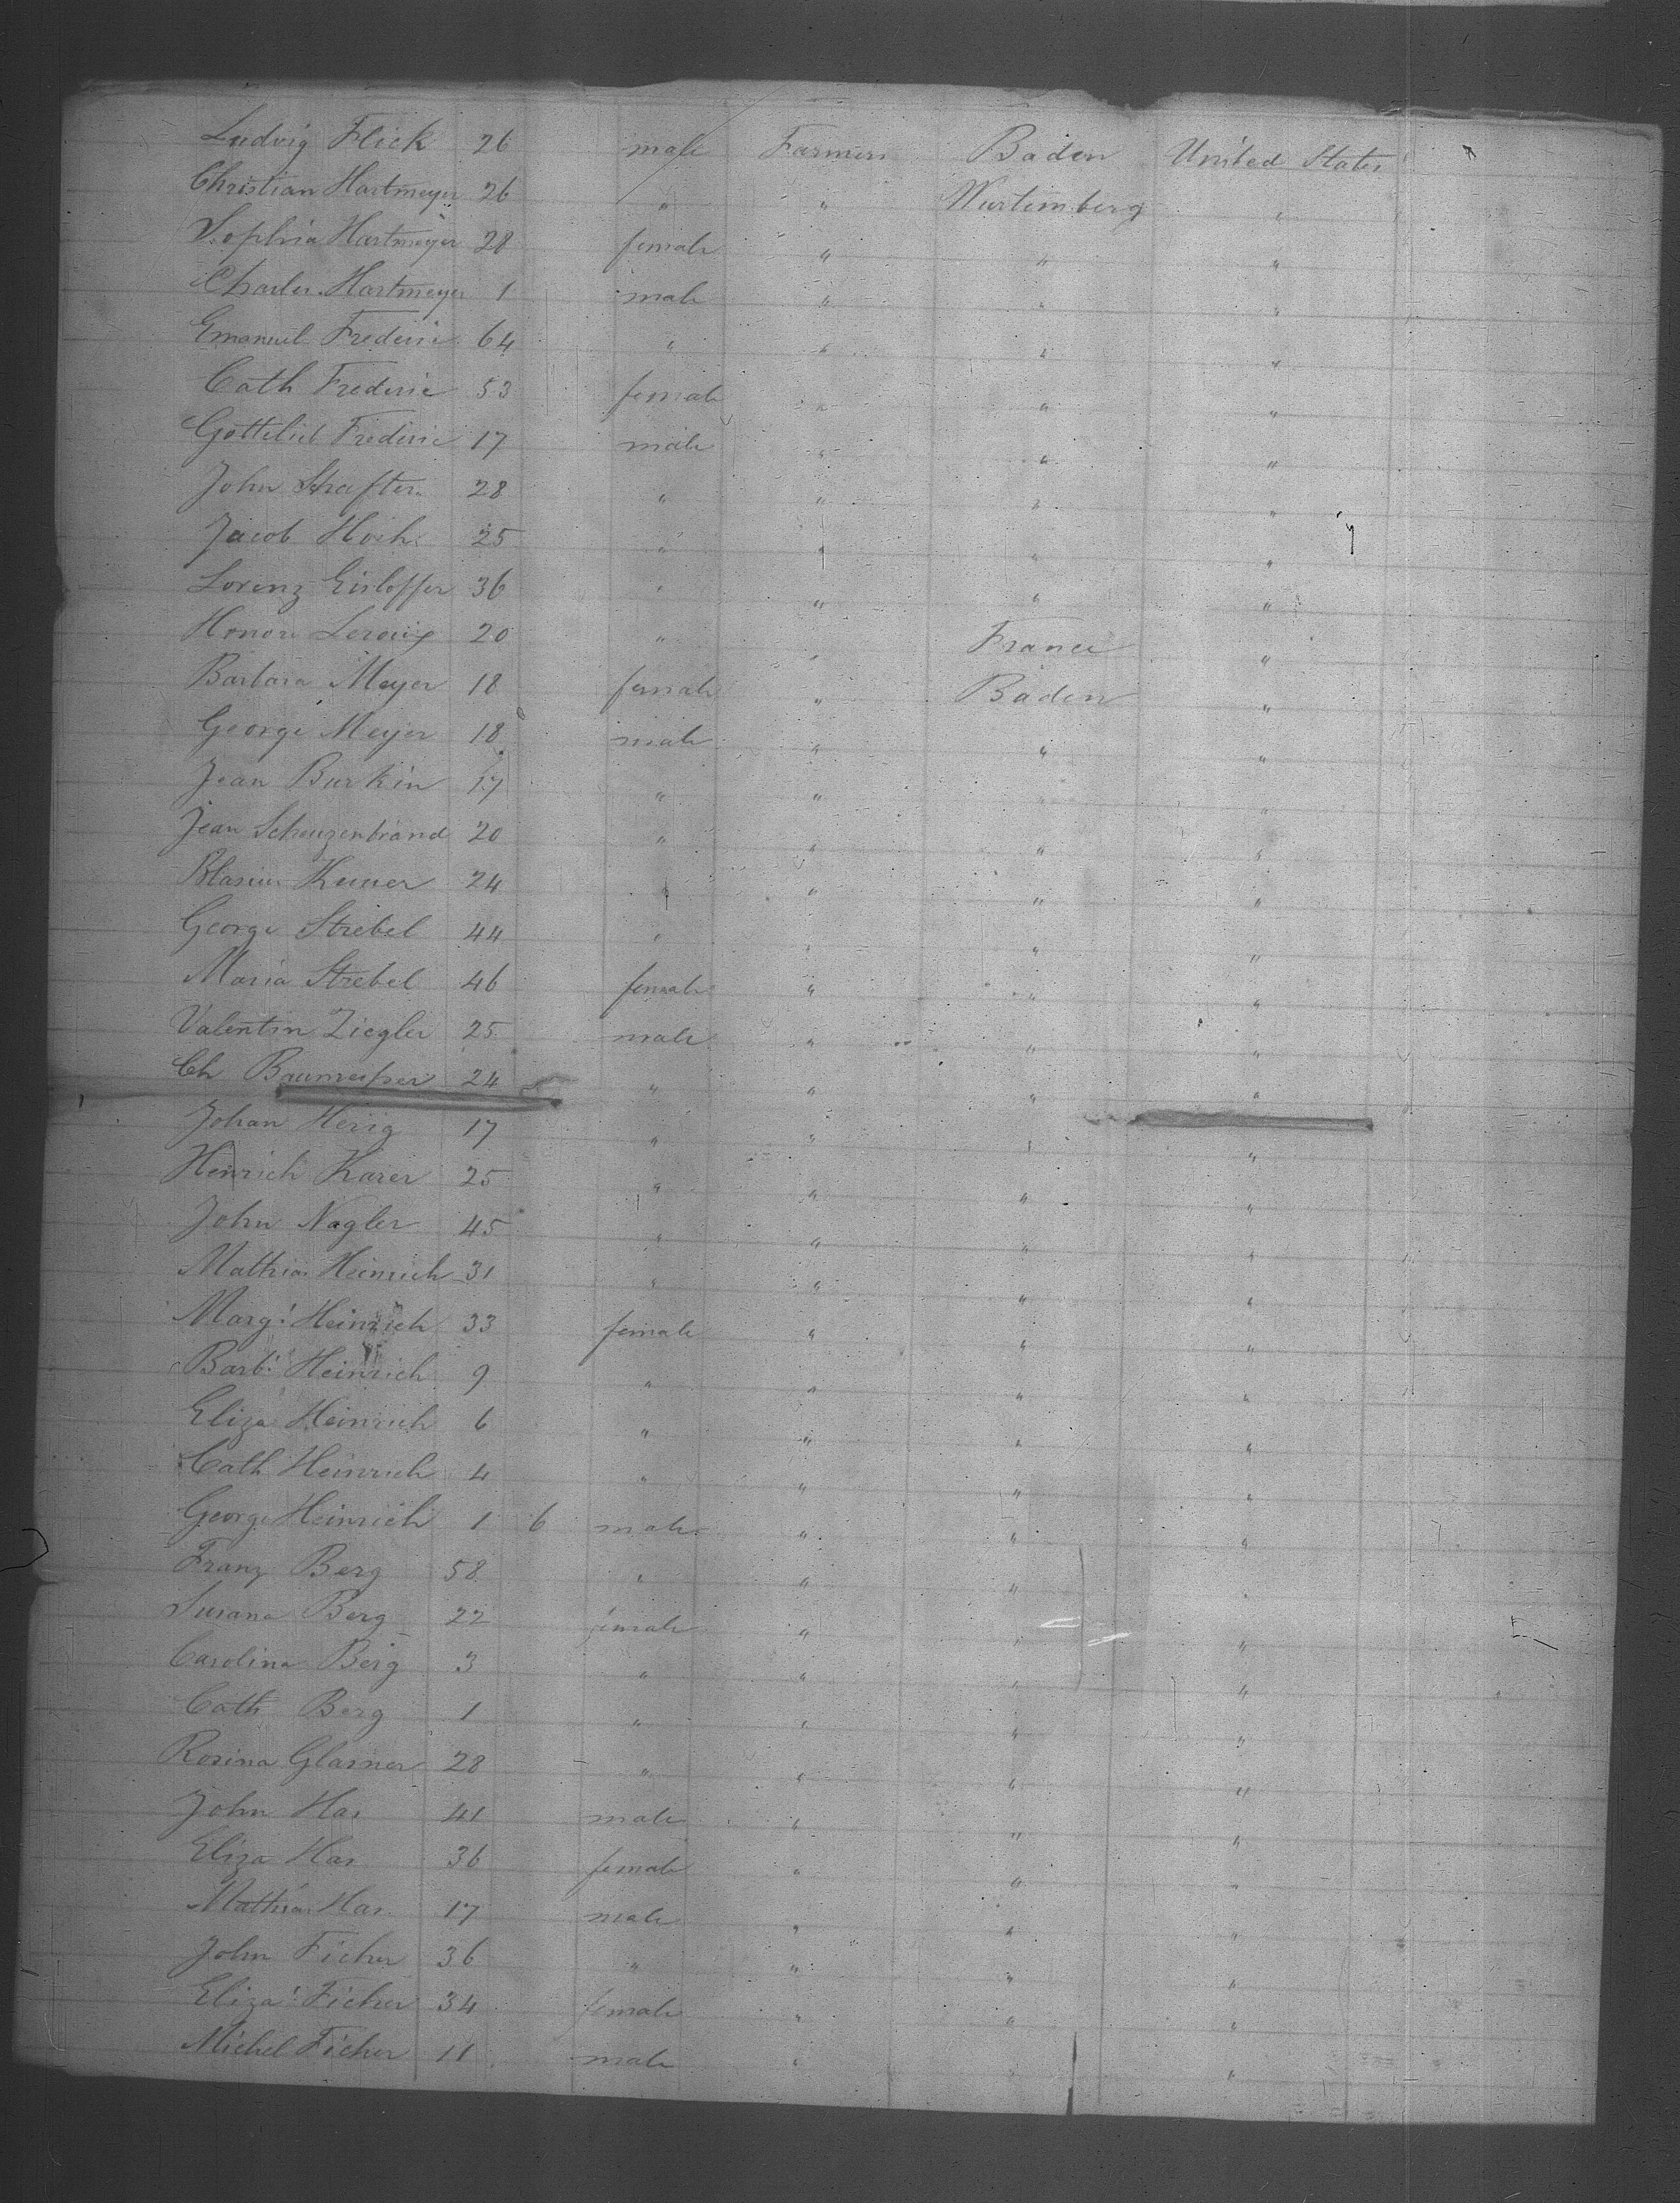 Ludvig Flick 26 male Farmers Baden United States
Christian Hartmeyer 26 " " Wurtemberg "
Sophia Hartmeyer 28 female " " "
Charles Hartmeyer 1 male " " "
Emanuel Frederic 64 " " " "
Cath Frederic 53 female " " "
Gottelieb Frederic 17 male " " "
John 28 " " " "
Jacob 25 " " " "
Lorenz 36 " " " "
Honore Leroux 20 " " France "
Barbara Meyer 18 female " Baden "
George Meyer 18 male " " "
Jean Burkin 17 " " " "
Jean Scheuzenbrand 20 " " " "
Blasius 24 " " " "
George Strebel 44 " " " "
Maria Strebel 46 female " " "
Valentin Ziegler 25 male " " "
Ch 24 " " " "
Johan Herig 17 " " " "
Henrich Karer 25 " " " "
John Nagler 45 " " " "
Mathias Heinrich 31 " " " "
Marg: Heinrich 33 female " " "
Barb: Heinrich 9 " " " "
Eliza Heinrich 6 " " " "
Cath Heinrich 4 " " " "
George Heinrich 1 6 male " " "
Franz Berg 58 " " " "
Susana Berg 22 female " " "
Carolina Berg 3 " " " "
Cath Berg 1 " " " "
Rosina Glasner 28 " " " "
John Has 41 male " " "
Eliza Has 36 female " " "
Mathias Has 17 male " " "
John Ficher 36 " " " "
Eliza: Ficher 34 female " " "
Michel Ficher 11 male " " "